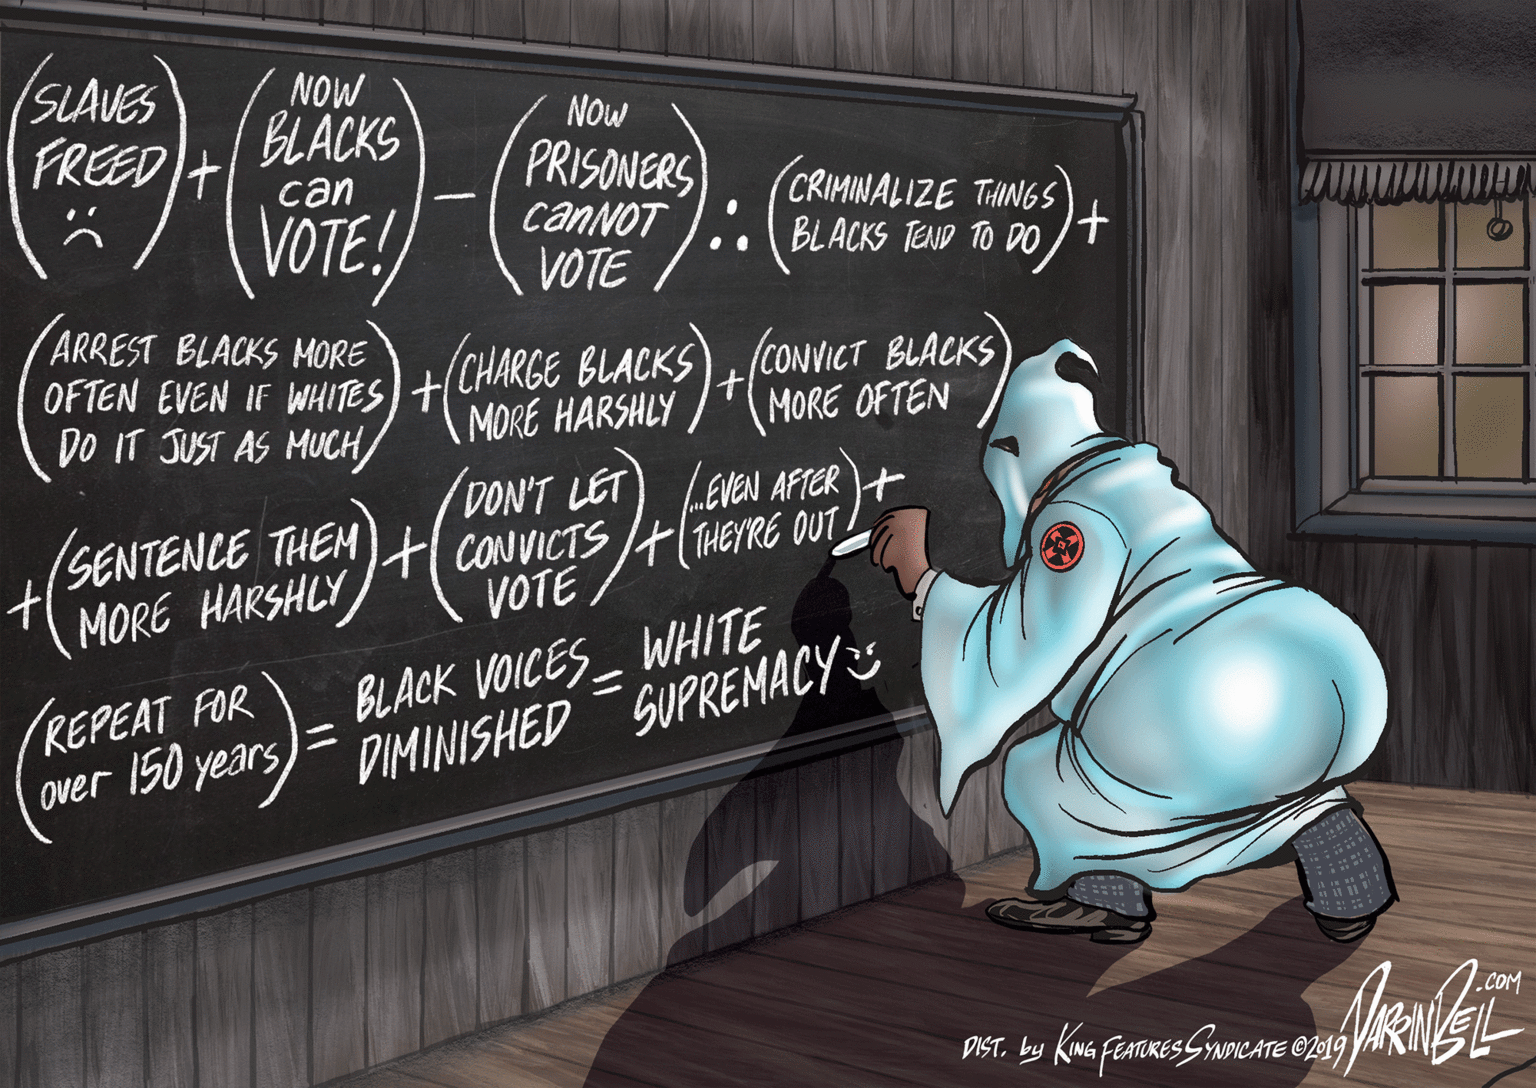 (SLAVES FREED :( ) + (NOW BLACKS can VOTE!) − (NOW PRISONERS cannot VOTE) ∴ (CRIMINALIZE THINGS BLACKS TEND TO DO) +
(ARREST BLACKS MORE OFTEN EVEN IF WHITES DO IT JUST AS MUCH) + (CHARGE BLACKS MORE HARSHLY) + (CONVICT BLACKS MORE OFTEN)
+ (SENTENCE THEM MORE HARSHLY) + (DON'T LET CONVICTS VOTE) + (...EVEN AFTER THEY'RE OUT) +
(REPEAT FOR over 150 years) = BLACK VOICES DIMINISHED = WHITE SUPREMACY :)
DIST. by KING FEATURES SYNDICATE ©2019 DARRINBELL.COM